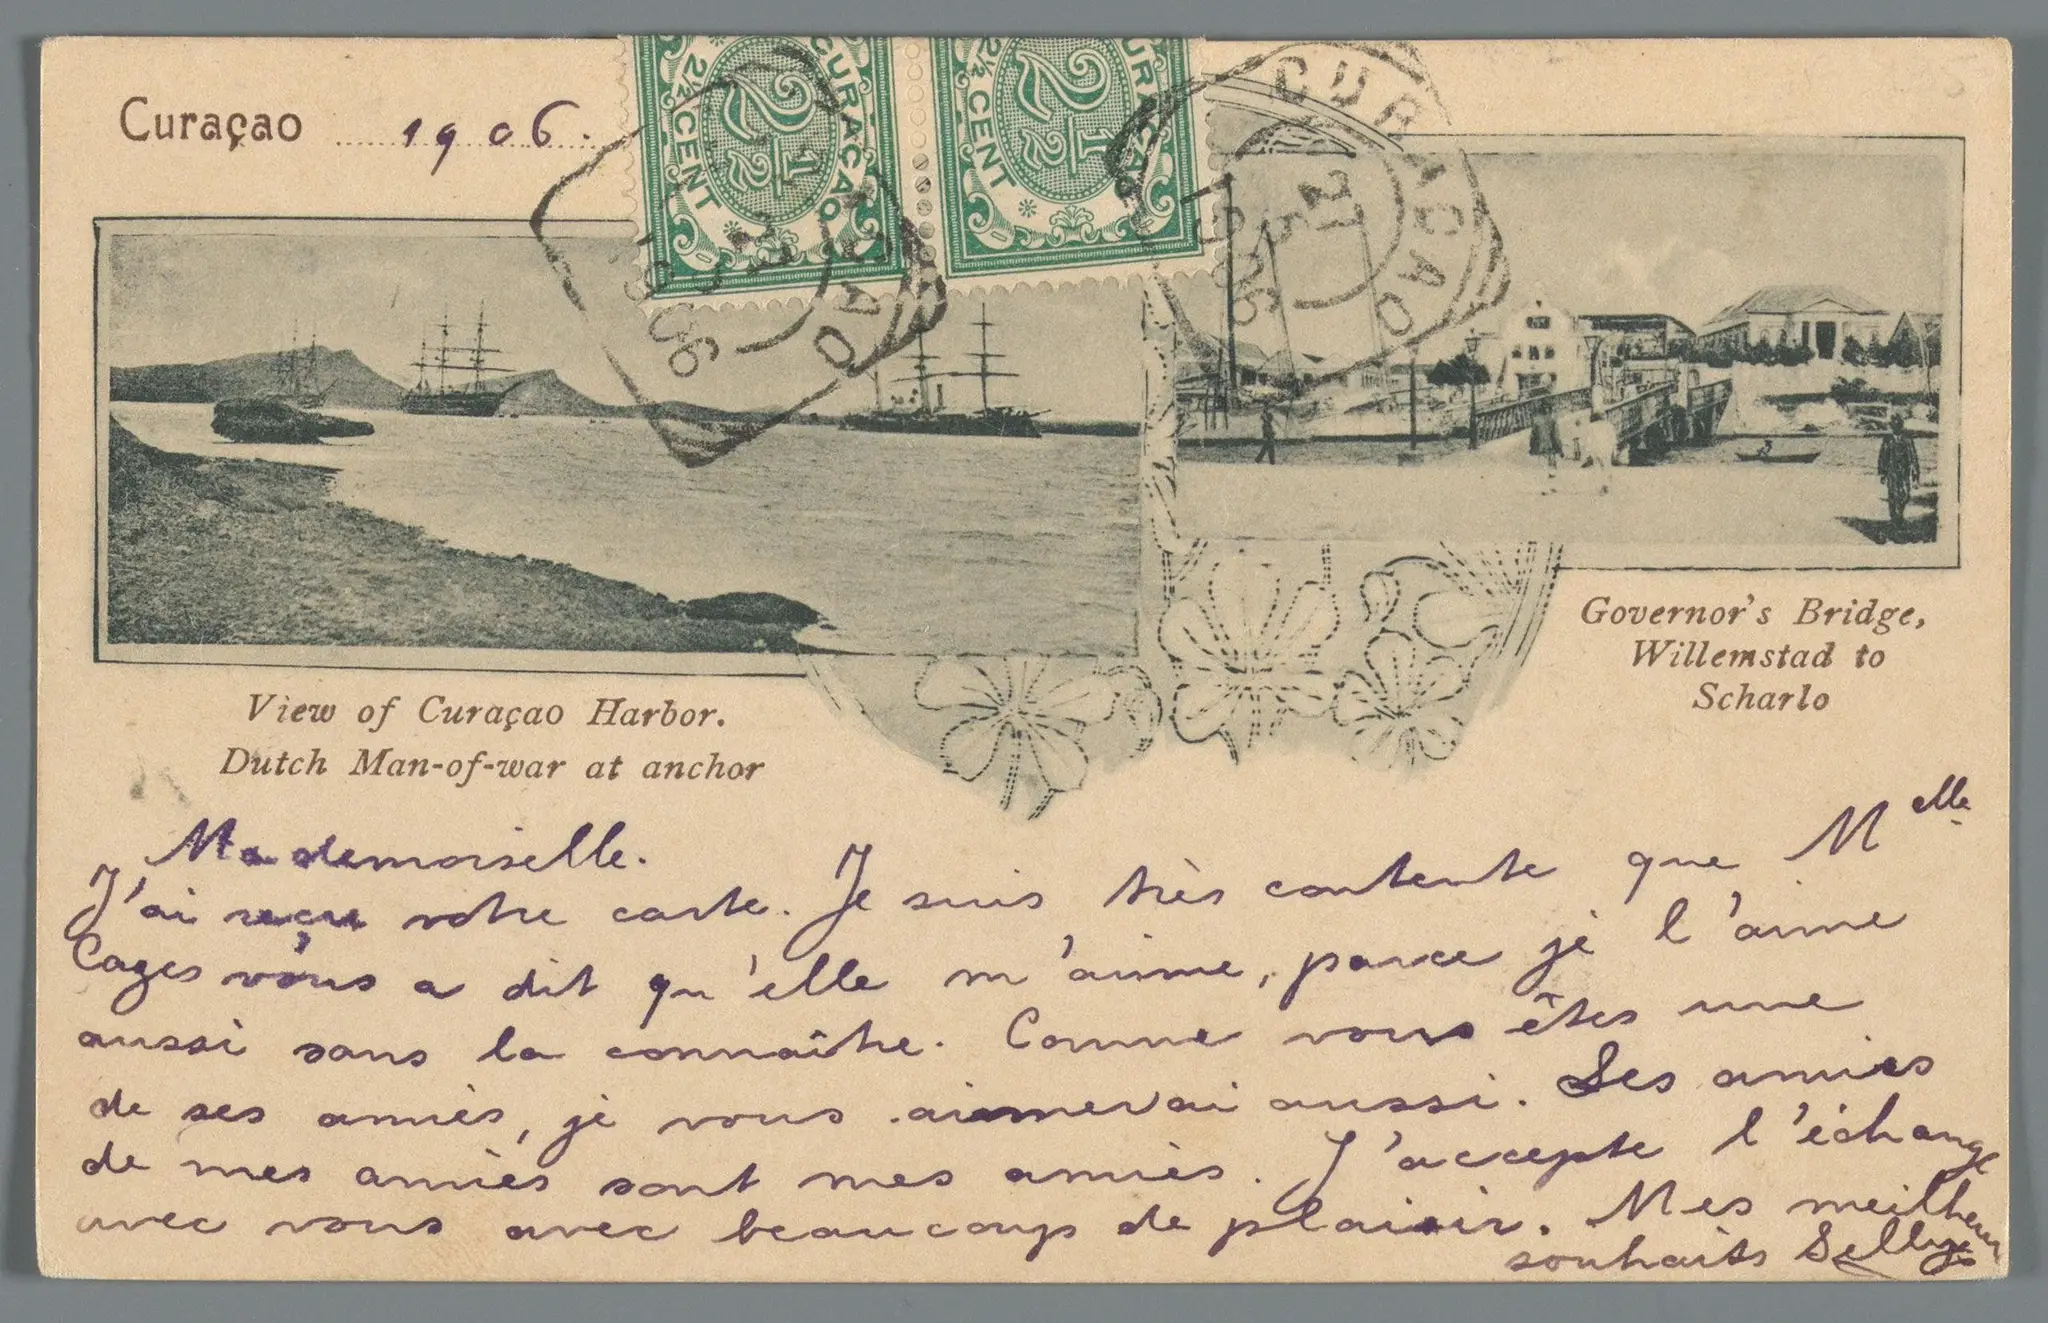 Curaçao 1906.
CURAÇAO
2½
2½ CENT
CURAÇAO
2½
2½ CENT
CURAÇAO
21 5
1906
CURAÇAO
21 5
1906
View of Curaçao Harbor.
Dutch Man-of-war at anchor
Governor's Bridge,
Willemstad to
Scharlo
Mademoiselle.
J'ai reçu votre carte. Je suis très contente que Melle
Cages vous a dit qu'elle m'aime, parce je l'aime
aussi sans la connaître. Comme vous êtes une
de ses amiès, je vous aimerai aussi. Les amies
de mes amiès sont mes amiès. J'accepte l'échange
avec vous avec beaucoup de plaisir. Mes meilheur
souhaits Selly